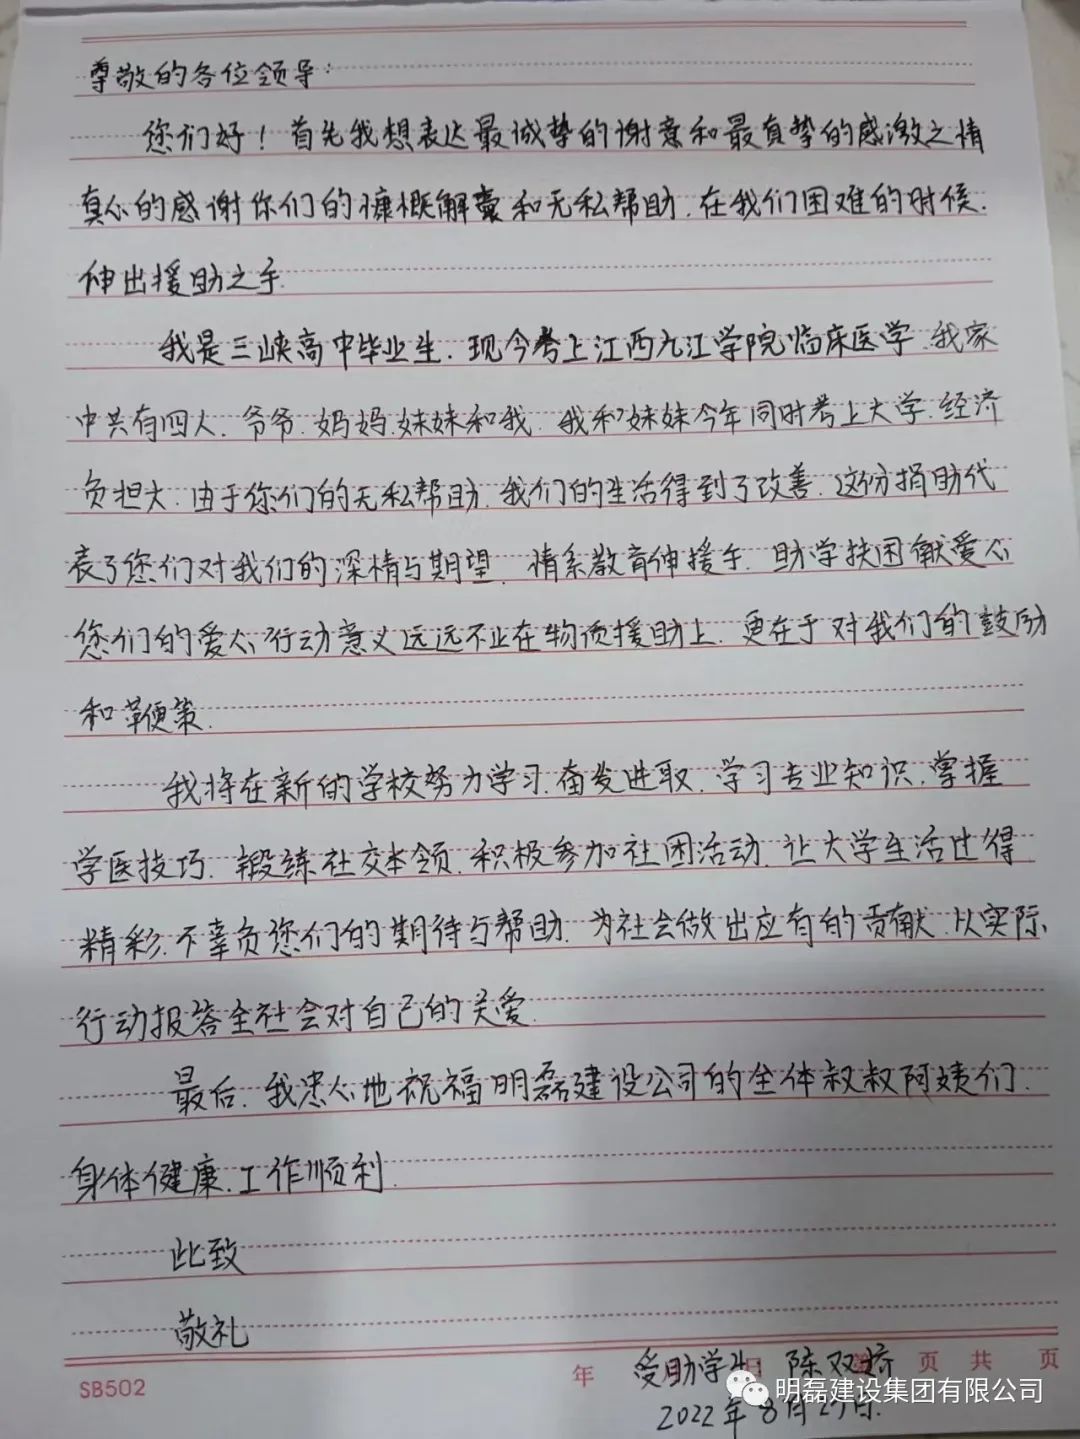 尊敬的各位领导:
您们好！首先我想表达最诚挚的谢意和最真挚的感激之情
真心的感谢你们的慷慨解囊和无私帮助.在我们困难的时候.
伸出援助之手.
我是三峡高中毕业生.现今考上江西九江学院临床医学.我家
中共有四人.爷爷.妈妈.妹妹和我.我和妹妹今年同时考上大学.经济
负担大.由于您们的无私帮助.我们的生活得到了改善.这份捐助代
表了您们对我们的深情与期望.情系教育伸援手.助学扶困献爱心
您们的爱心行动意义远远不止在物质援助上.更在于对我们的鼓励
和鞭策.
我将在新的学校努力学习.奋发进取.学习专业知识.掌握
学医技巧.锻练社交本领.积极参加社团活动.让大学生活过得
精彩.不辜负您们的期待与帮助.为社会做出应有的贡献.以实际
行动报答全社会对自己的关爱.
最后.我忠心地祝福明磊建设公司的全体叔叔阿姨们.
身体健康.工作顺利.
此致
敬礼
SB502 年 日 页 共 页
受助学生:陈双
明磊建设集团有限公司
2022年8月27日.